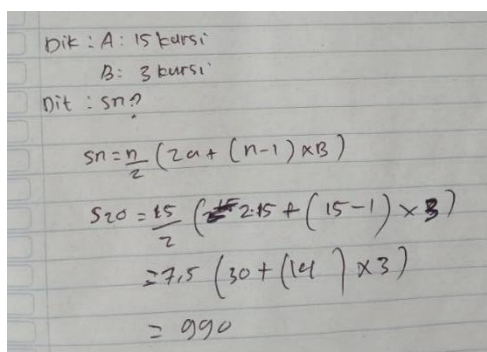 Dik : A : 15 kursi
B : 3 kursi
Dit : Sn?
Sn = n/2 (2a + (n-1) x B)
S20 = 15/2 (2.15 + (15-1) x 3)
= 7,5 (30 + (14) x 3)
= 990